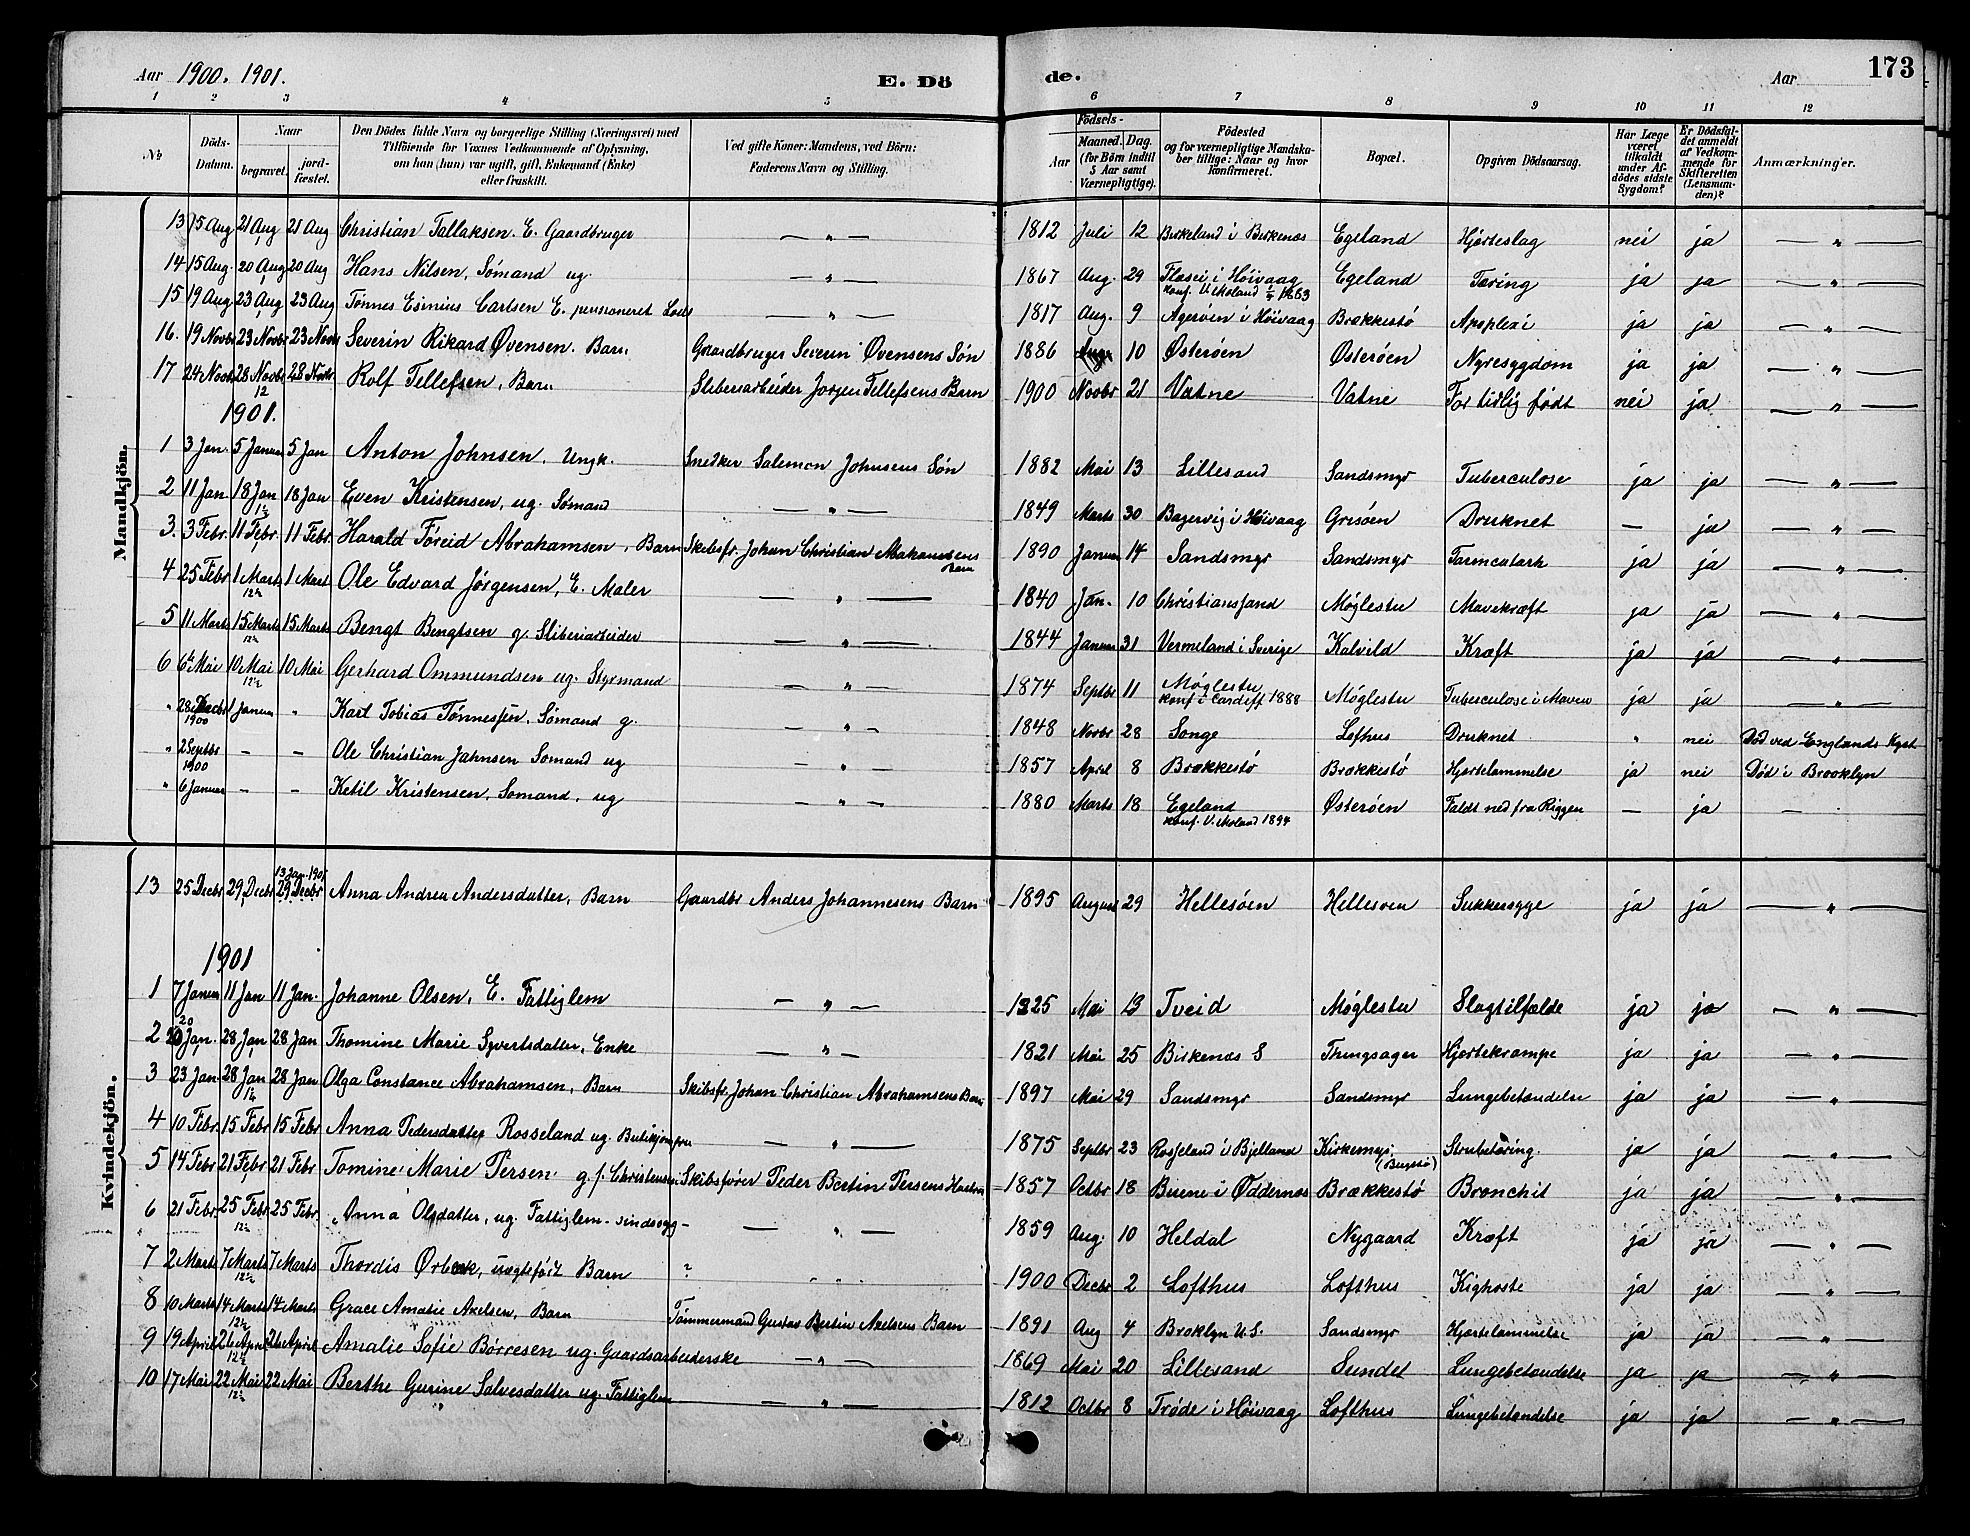 Aar 1900. 1901. E. Dö de. Aar 173
1 2 3 4 5 6 7 8 9 10 11 12
No. Döds-Datum. Naar begravet. jord-fæstet. Den Dödes fulde Navn og borgerlige Stilling (Næringsvei) med Tilföiende for Voxnes Vedkommende af Oplysning, om han (hun) var ugift, gift, Enkemand (Enke) eller fraskilt. Ved gifte Koner: Mandens, ved Börn: Faderens Navn og Stilling. Födsels- Aar Maaned. Dag. (for Börn indtil 5 Aar samt Værnepligtige). Födested og for værnepligtige Mandska-ber tillige: Naar og hvor konfirmeret. Bopæl. Opgiven Dödsaarsag. Har Læge været tilkaldt under Af-dödes sidste Sygdom? Er Dödsfal-det anmeldt af Vedkom-mende for Skifteretten (Lensman-den)? Anmærkninger.
Mandkjön.
13 15 Aug 21 Aug 21 Aug Christian Tallaksen. E. Gaardbruger — „ — 1812 Juli 12 Birkeland i Birkenæs Egeland Hjerteslag nei ja — „ —
14 15 Aug. 20 Aug 20 Aug Hans Nilsen, Sømand ug. — „ — 1867 Aug. 29 Flasei i Høivaag konf. V. Moland 1883 Egeland Tæring ja ja — „ —
15 19 Aug. 23 Aug 23 Aug Tønnes Esmius Carlsen E. pensioneret Lods — „ — 1817 Aug. 9 Agerøen i Høivaag Brækkestø Apoplexi ja ja — „ —
16. 19 Novbr 23 Novbr 23 Novbr Severin Rikard Øvensen. Barn Gaardbruger Severin Øvensens Søn 1886 10 Østerøen Østerøen Nyresygdom ja ja — „ —
17 24 Novbr 28 Novbr 28 Novbr Rolf Tellefsen, Barn Sliberiarbeider Jørgen Tellefsens Barn 1900 Novbr 21 Vatne Vatne For tidlig født nei ja — „ —
12
1901.
1 3 Jan. 5 Januar 5 Jan Anton Johnsen, Ungk. Snedker Salemon Johnsens Søn 1882 Mai 13 Lillesand Sandsmyr Tuberculose ja ja — „ —
2 11 Jan 18 Jan 18 Jan Even Kristensen, ug. Sømand — „ — 1849 Marts 30 Bagervig i Høivaag Grisøen Druknet — ja — „ —
3. 3 Febr. 11 Febr. 11 Febr. Harald Foreid Abrahamsen, Barn Skibsfr. Johan Christian Abrahamsens Barn 1890 Januar 14 Sandsmyr Sandsmyr Tarmcatarh ja ja — „ —
4 25 Febr 1 Mart 1 Mart Ole Edvard Jørgensen, E. Maler — „ — 1840 Jan. 10 Christiansand Møglestu Mavekræft ja ja — „ —
5 11 Marts 15 Marts 15 Marts Bengt Bengtsen g. Sliberiarbeider — „ — 1844 Januar 31 Vermeland i Sverige Kalvild Kræft ja ja — „ —
6 6te Mai 10 Mai 10 Mai Gerhard Ommundsen ug. Styrmand — „ — 1874 Septbr 11 Møglestu konf. i Cardiff 1888 Møglestu Tuberculose i Maven ja ja — „ —
„ 28 Decbr 1900 1 Januar „ Karl Tobias Tønnessen, Sømand g. — „ — 1848 Novbr 28 Songe Lofthus Druknet „ nei Død ved Englands Kyst
„ 2 Septbr 1900 — — Ole Christian Jahnsen Sømand ug — „ — 1857 April 8 Brækkestø Brækkestø Hjertelammelse ja nei Død i Brooklyn
„ 6 Januar — — Ketil Kristensen, Sømand, ug — „ — 1880 Marts 18 Egeland konf. V. Moland 1894 Østerøen Faldt ned fra Riggen — ja —
Kvindekjön.
13 25 Decbr 29 Decbr 13 Jan 1901 29 Decbr Anna Andrea Andersdatter, Barn Gaardbr Anders Johannesens Barn 1895 August 29 Hellesøen Hellesøen Sukkersyge ja ja — „ —
1901
1 7 Januar 11 Jan 11 Jan. Johanne Olsen, E. Fattiglem — „ — 1825 Mai 13 Tveid Møglestu Slagtilfælde ja ja — „ —
2 20 Jan. 28 Jan 28 Jan Thomine Marie Syvertsdatter, Enke — „ — 1821 Mai 25 Birkenæs S Thingsager Hjertekrampe ja ja — „ —
3 23 Jan. 28 Jan 28 Jan Olga Constance Abrahamsen, Barn Skibsfr. Johan Christian Abrahamsens Barn 1897 Mai 29 Sandsmyr Sandsmyr Lungebetændelse ja ja — „ —
4 10 Febr. 15 Febr 15 Febr Anna Pedersdatter Rosseland ug. Butikjomfru — „ — 1875 Septbr 23 Rosseland i Bjelland Kirkemyr Strubetæring. ja ja — „ —
5 14 Febr 21 Febr 21 Febr Tomine Marie Tersen g. f. Christensen Skibsfører Peder Bertin Tersens Hustru 1857 Octbr 18 Birene i Oddernæs Brækkestø Bronchit ja ja — „ —
6 21 Febr. 25 Febr 25 Febr. Anna Olsdatter, ug. Fattiglem - sindssyg — „ — 1859 Aug. 10 Heldal Nygaard Kræft ja ja — „ —
7 2 Marts 7 Marts 7 Marts Thordis Ørbæk, uægtefødt Barn ? „ „ 1900 Decbr 2 Lofthus Lofthus Kighoste ja ja — „ —
8 10 Marts 14 Marts 14 Marts Grace Amalie Axelsen, Barn Tømmermand Gustav Bertin Axelsens Barn 1891 Aug 4 Broklyn U.S. Sandsmyr Hjertelammelse ja ja — „ —
9 19 April 26 April 26 April Amalie Sofie Børresen ug. Gaardsarbeiderske — „ — 1869 Mai 20 Lillesand Sundet Lungebetændelse ja ja — „ —
10 17 Mai 22 Mai 22 Mai Berthe Gurine Salvesdatter ug. Fattiglem — „ — 1812 Octbr 8 Trøde i Høivaag Lofthus Lungebetændelse ja ja — „ —